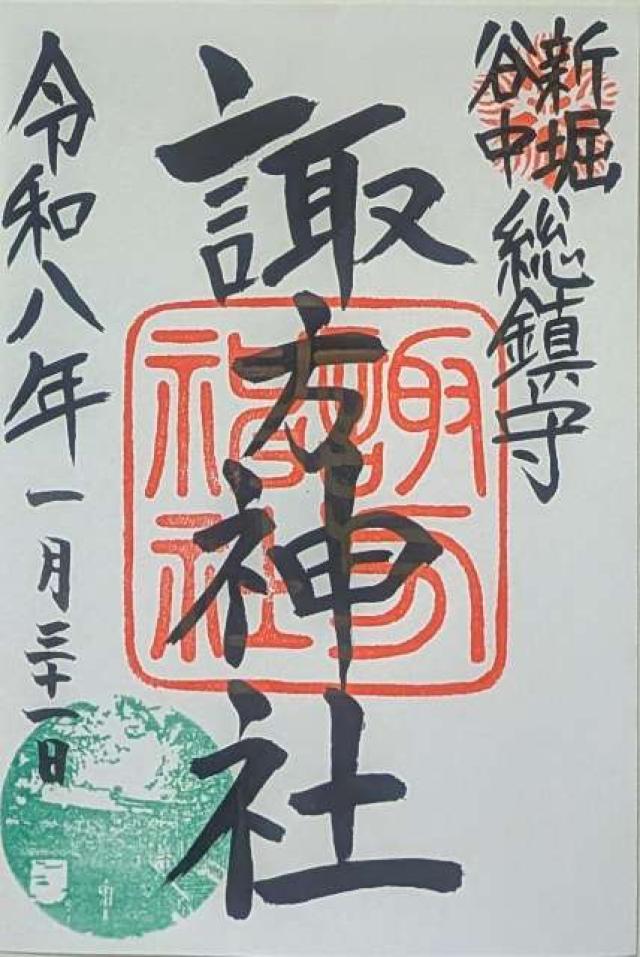 新堀
谷中
総鎮守
諏方神社
諏方
神社
令和八年一月三十一日